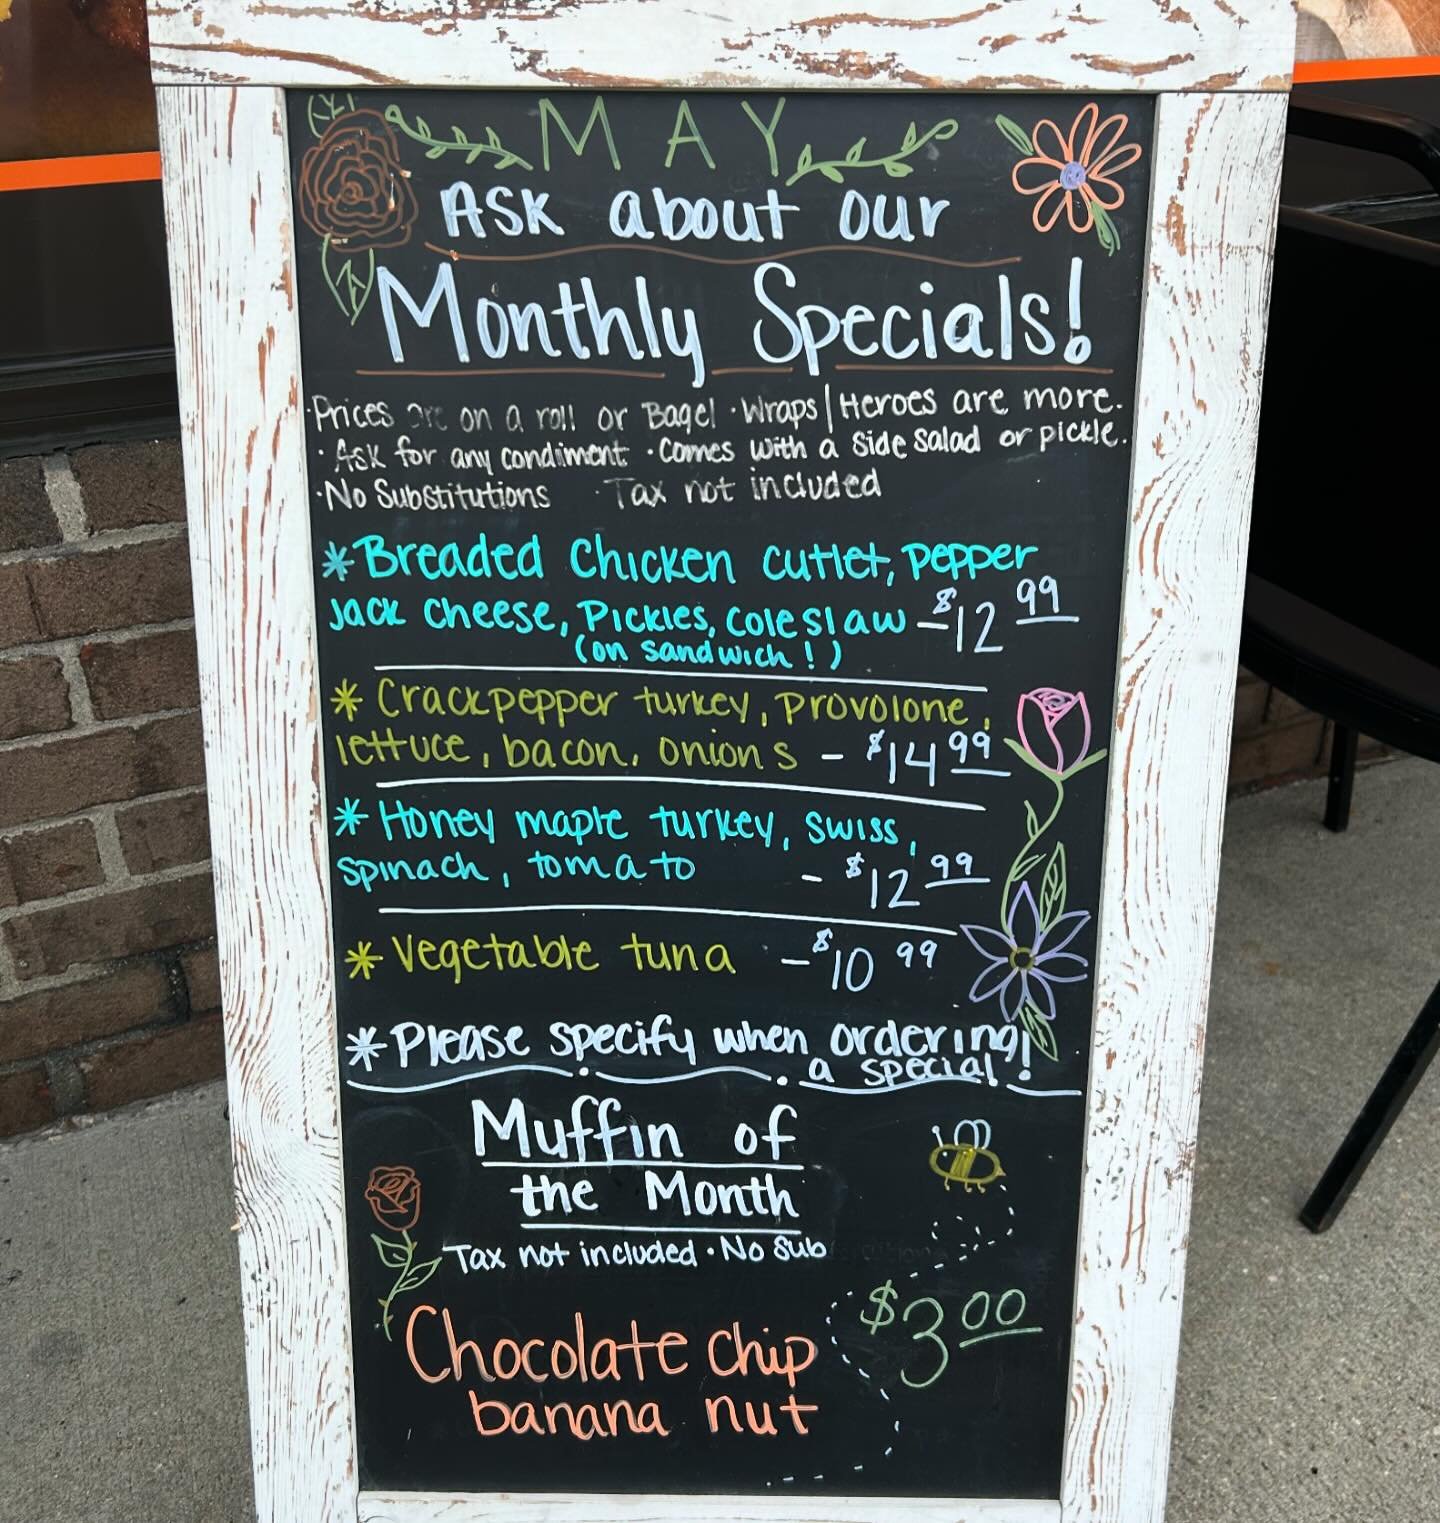 MAY
Ask about our
Monthly Specials!
·Prices are on a roll or Bagel ·Wraps|Heroes are more.
·Ask for any condiment ·Comes with a side salad or pickle.
·No Substitutions ·Tax not included
*Breaded Chicken cutlet, pepper
Jack cheese, Pickles, coleslaw -$12 99
(on sandwich!)
*Crackpepper turkey, provolone,
lettuce, bacon, onions - $14 99
*Honey maple turkey, swiss,
spinach, tomato - $12 99
*Vegetable tuna -$10 99
*Please specify when ordering!
a special!
Muffin of
the Month
Tax not included · No Sub
$3 00
Chocolate chip
banana nut